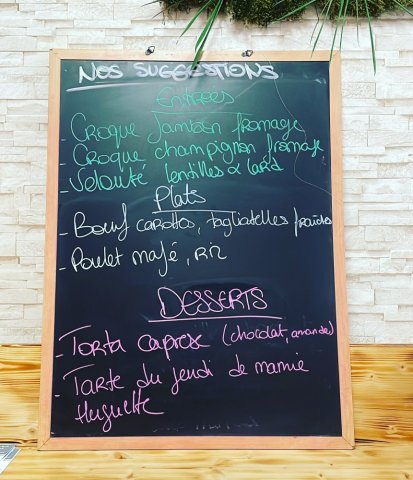 NOS SUGGESTIONS
Entrées
- Croque jambon fromage
- Croque champignon fromage
- Velouté lentilles & lard
Plats
- Boeuf carottes, tagliatelles fraîches
- Poulet mafé, riz
DESSERTS
- Torta caprese (chocolat, amande)
- Tarte du jeudi de mamie
Huguette